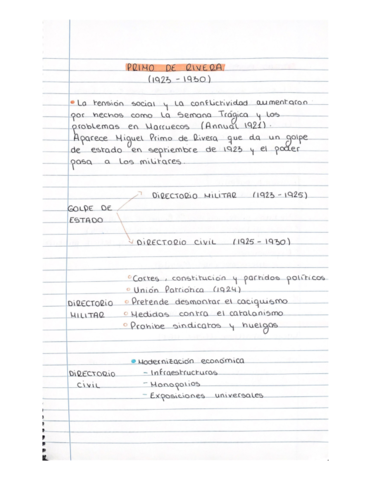 PRIMO DE RIVERA
(1923 - 1930)
• La tensión social y la conflictividad aumentaron
por hechos como la Semana Trágica y los
problemas en Marruecos (Annual 1921).
Aparece Miguel Primo de Rivera que da un golpe
de estado en septiembre de 1923 y el poder
pasa a los militares.
DIRECTORIO MILITAR (1923 - 1925)
GOLPE DE
ESTADO
DIRECTORIO CIVIL (1925 - 1930)
° Cortes, constitución y partidos políticos
° Unión Patriótica (1924)
DIRECTORIO ° Pretende desmontar el caciquismo
MILITAR ° Medidas contra el catalanismo
° Prohibe sindicatos y huelgas
• Modernización económica
DIRECTORIO - Infraestructuras
CIVIL - Monopolios
- Exposiciones universales